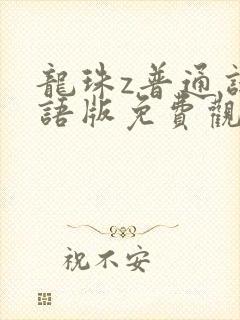 龍珠z普通話
語版免費觀
祝不安